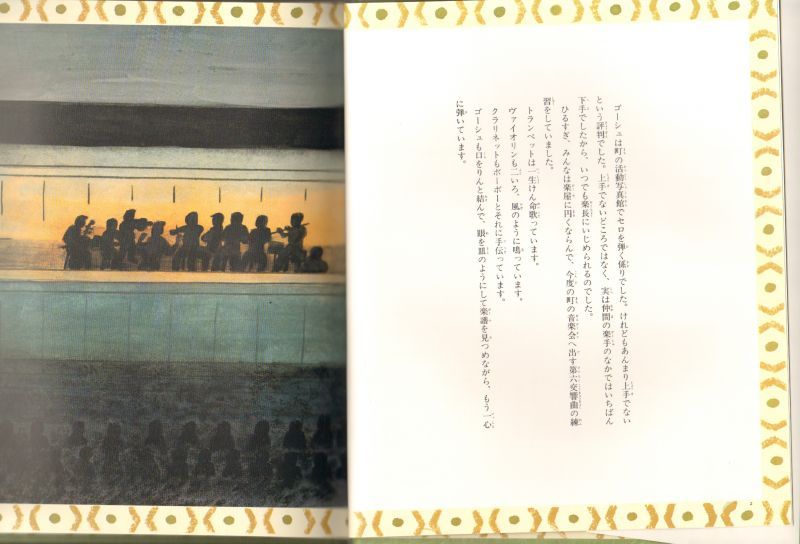 ゴーシュは町の活動写真館でセロを弾く係りでした。けれどもあんまり上手でない
という評判でした。上手でないどころではなく、実は仲間の楽手のなかではいちばん
下手でしたから、いつでも楽長にいじめられるのでした。
ひるすぎ、みんなは楽屋に円くならんで、今度の町の音楽会へ出す第六交響曲の練
習をしていました。
トランペットは一生けん命歌っています。
ヴァイオリンも二いろ、風のように鳴っています。
クラリネットもボーボーとそれに手伝っています。
ゴーシュも口をりんと結んで、眼を皿のようにして楽譜を見つめながら、もう一心
に弾いています。
2